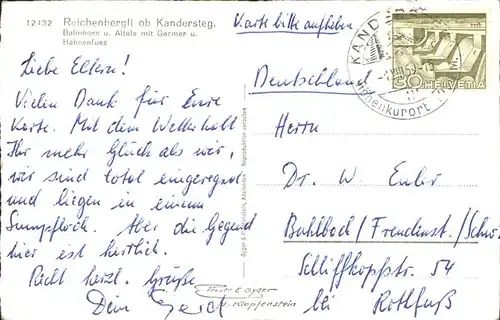 12432 Reichenbergli ob Kandersteg.
Balmhorn u. Altels mit Germer u.
Hahnenfuss
Karte bitte aufheben
Liebe Eltern!
Vielen Dank für Eure
Karte. Mit dem Wetter habt
Ihr mehr Glück als wir,
wir sind total eingeregnet
und liegen in einem
Sumpfloch. Aber die Gegend
hier ist herrlich.
Recht herzl. Grüße
Dein Gerd
Gyger & Klopfenstein, Adelboden Reproduktion verboten
Gyger
u. Klopfenstein
KANDERSTEG
Höhenkurort
30 HELVETIA
Deutschland
Herrn
Dr. W. Euler
Buhlbach / Freudenst. / Schw.
Schliffkopfstr. 54
bei Rothfuß